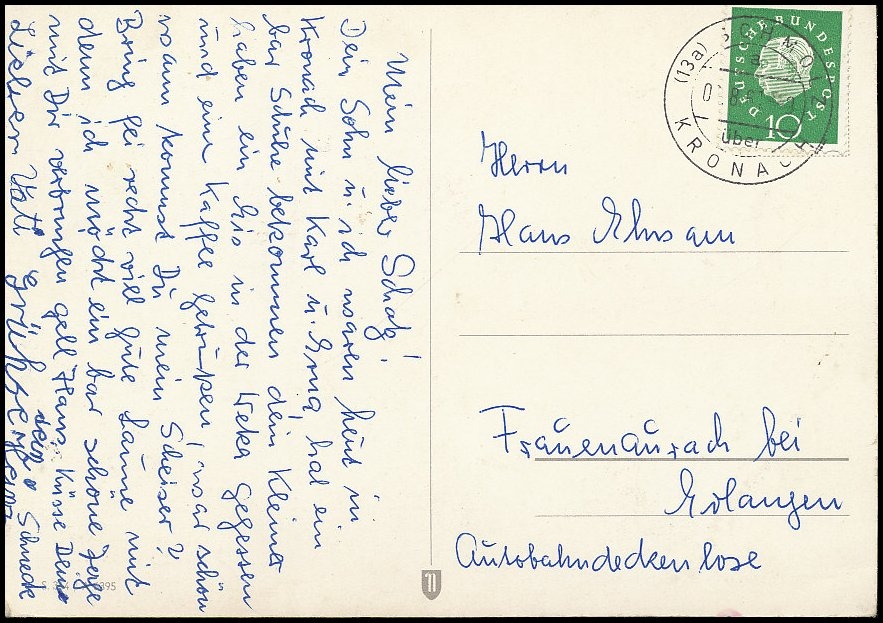 Mein lieber Schatz!
Dein Sohn u. ich waren heut in
Kronach mit Karl u. Erna, hat ein
bar Schuhe bekommen dein Kleiner
haben ein Eis in der Weka gegessen
und eine Kaffee getrunken, war schön
wann kommst Du mein Scheiser?
Bring fei recht viel gute Laune mit
denn ich möcht ein bar schöne Tage
mit Dir verbringen gell Hans, Küsse Deine
Schneck
Lieben Vati Grüße
dein
Herrn
Hans Ehrsam
Frauenaurach bei
Erlangen
Autobahndeckenlose
DEUTSCHE BUNDESPOST
10
(13a)
über
KRONACH